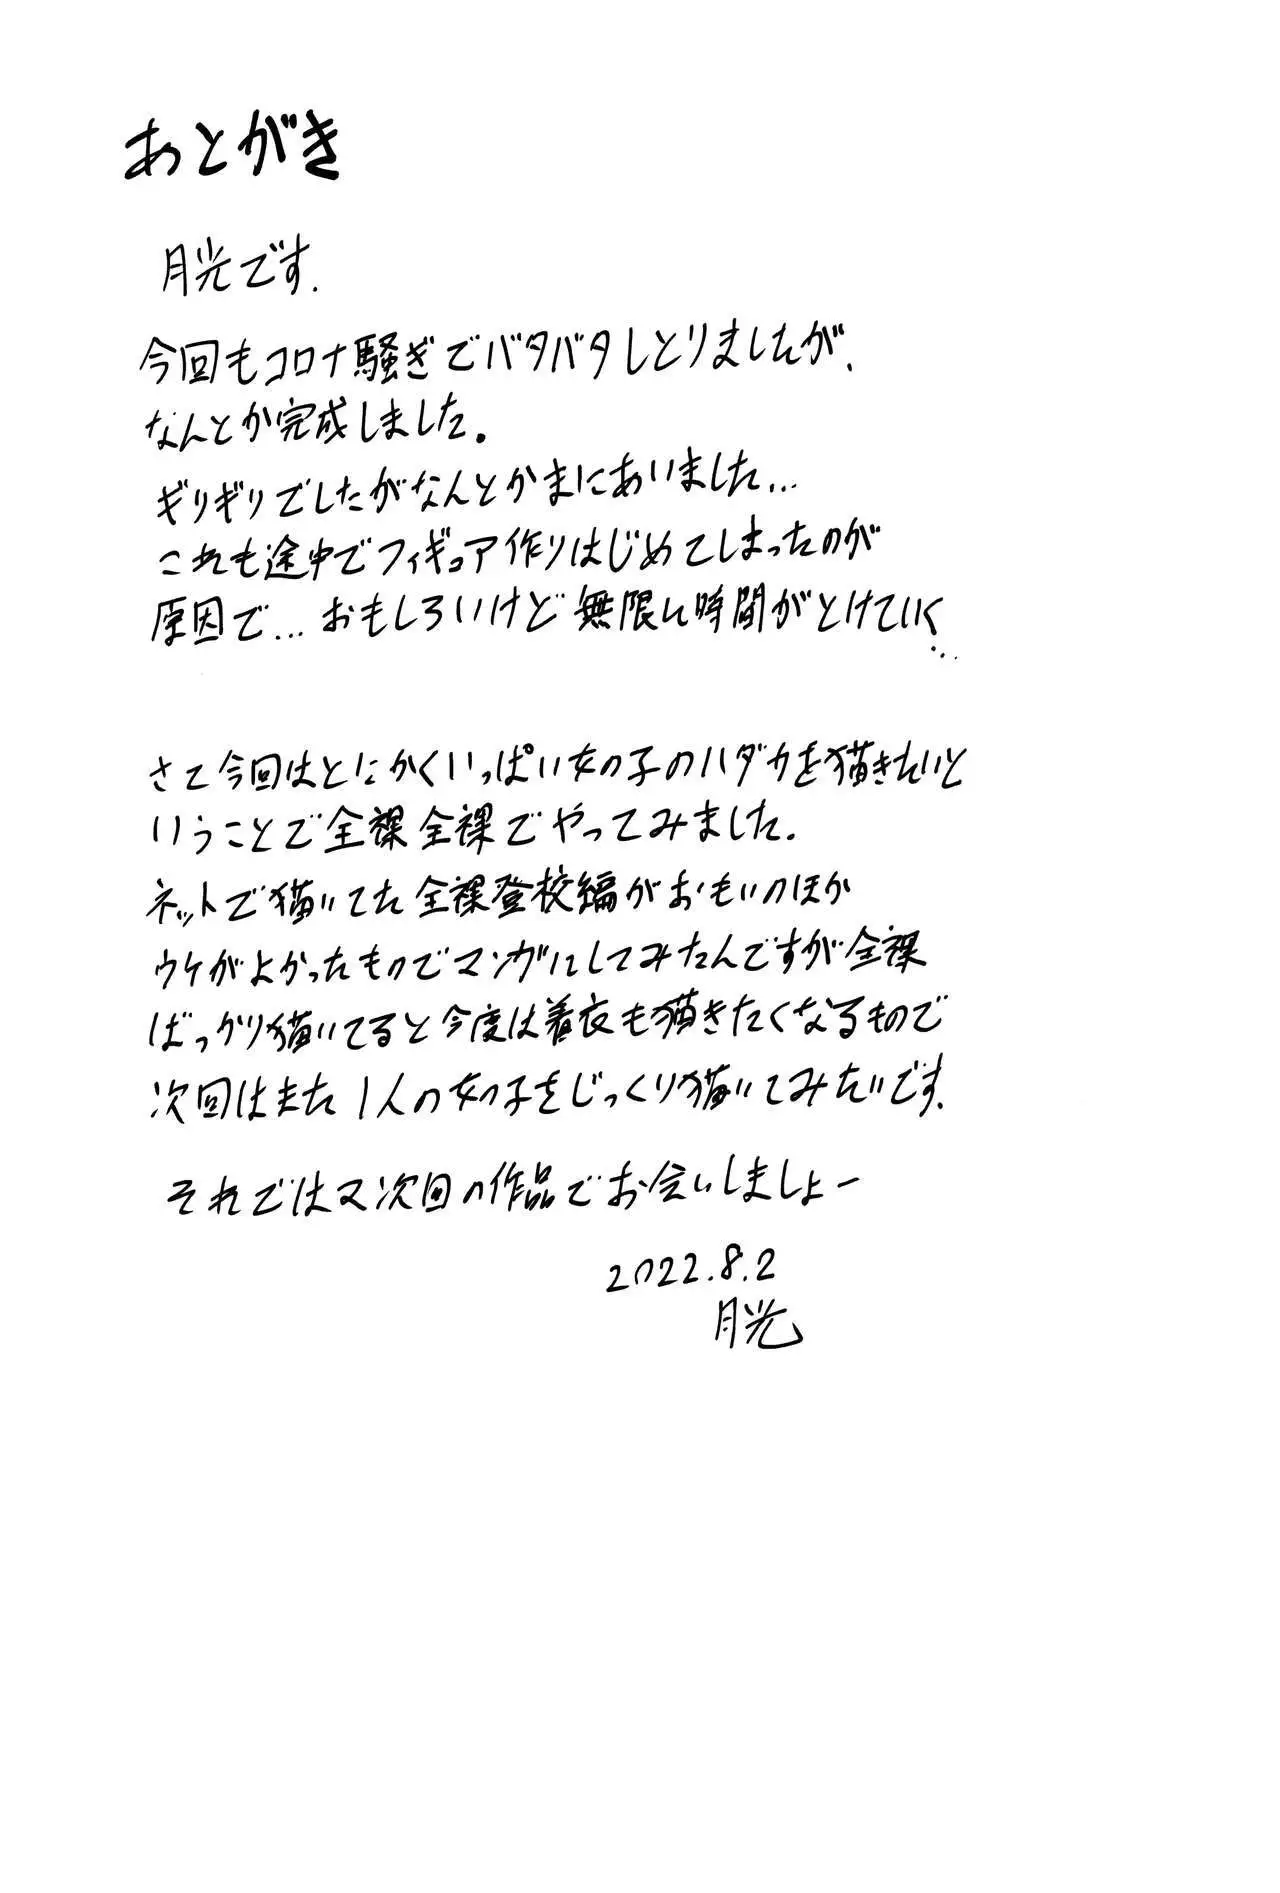 あとがき
月光です.
今回もコロナ騒ぎでバタバタしとりましたが、
なんとか完成しました。
ギリギリでしたがなんとかまにあいました…
これも途中でフィギュア作りはじめてしまったのが
原因で…おもしろいけど無限に時間がとけていく…
さて今回はとにかくいっぱい女の子のハダカを描きたいと
いうことで全裸全裸でやってみました.
ネットで描いてた全裸登校編がおもいのほか
ウケがよかったものでマンガにしてみたんですが全裸
ばっかり描いてると今度は着衣も描きたくなるもので
次回はまた1人の女の子をじっくり描いてみたいです.
それではマ次回の作品でお会いしましょー
2022.8.2
月光